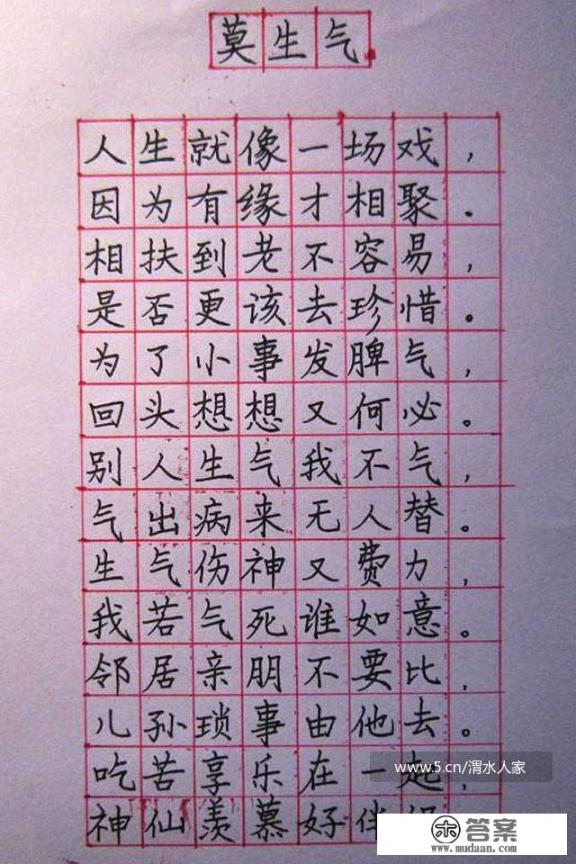 莫生气
人生就像一场戏，
因为有缘才相聚。
相扶到老不容易，
是否更该去珍惜。
为了小事发脾气，
回头想想又何必。
别人生气我不气，
气出病来无人替。
生气伤神又费力，
我若气死谁如意。
邻居亲朋不要比，
儿孙琐事由他去。
吃苦享乐在一起，
神仙羡慕好伴
www.5.cn/渭水人家
答案
www.mudaan.com